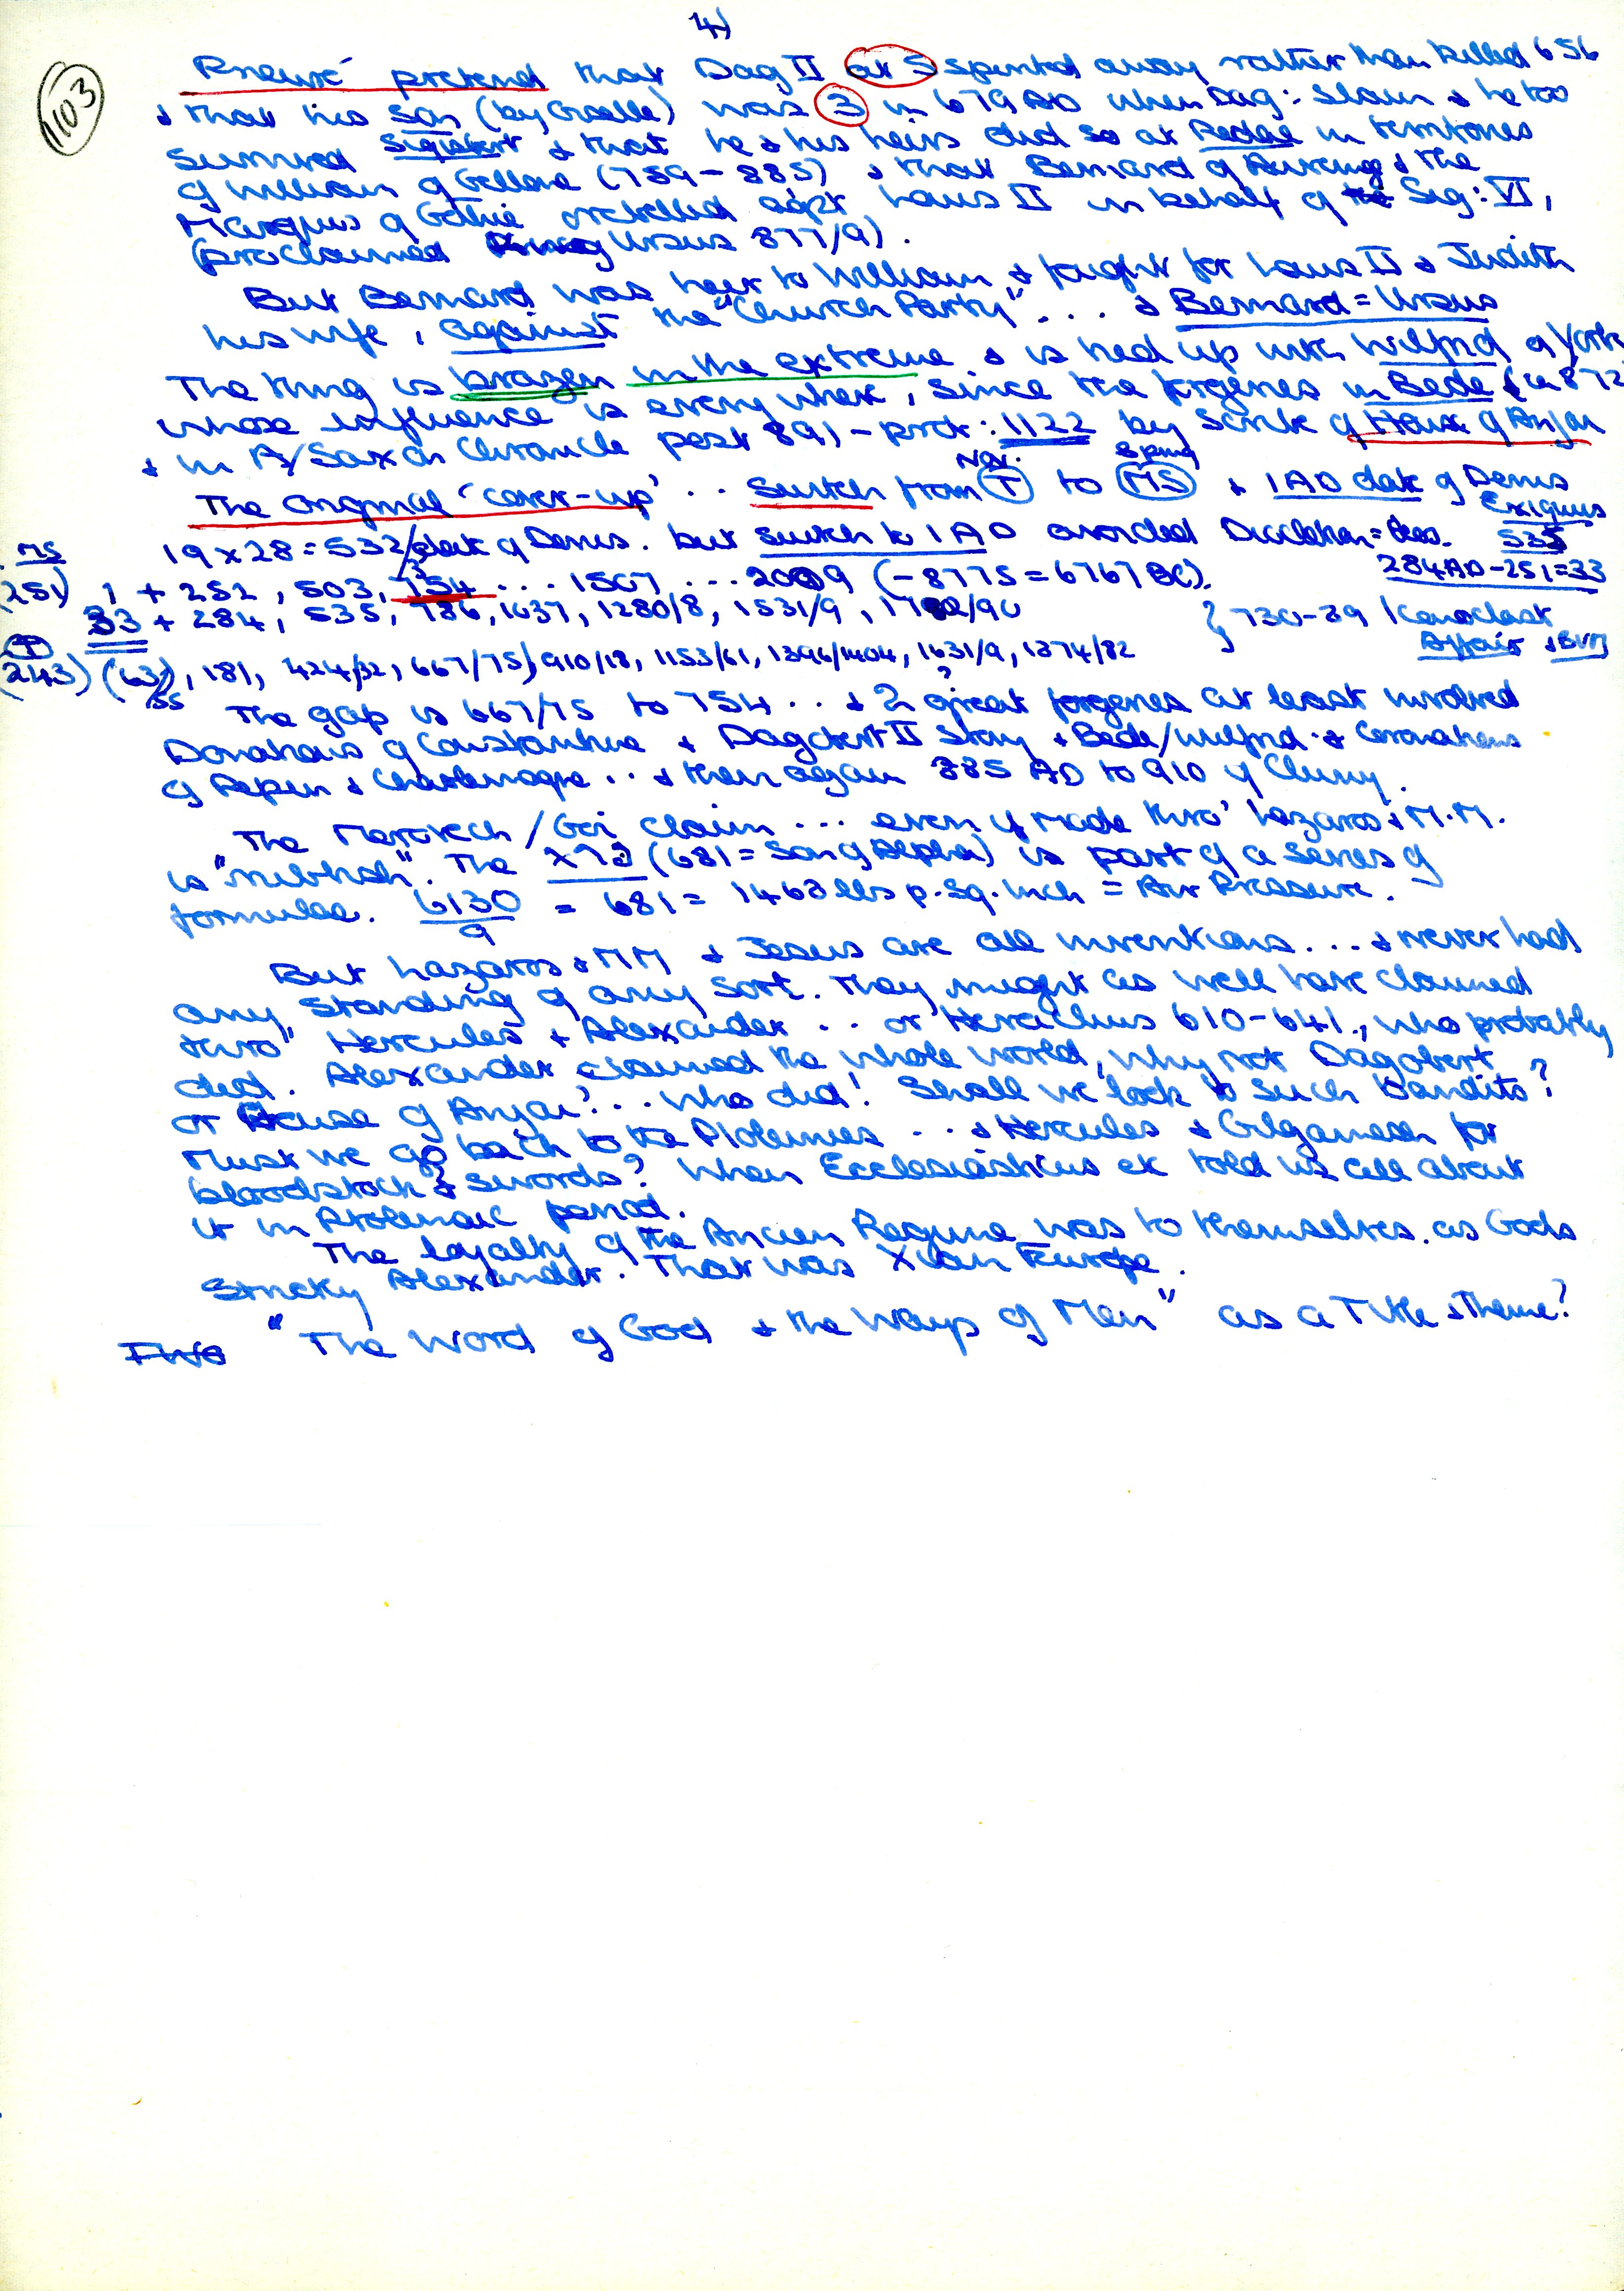 4)
1103
Prieuré pretend that Dag II at 5 spirited away rather than killed 656
& that his son (by Giselle) was 3 in 679 AD when Dag: slain & he too
survived Sigisbert & that he & his heirs did so at Redae in territories
of William of Gellone (759-885) & that Bernard of Auverng & the
Marquis of Gothie rebelled agst Louis II in behalf of the Sig: VI,
(proclaimed King Ursus 877/9).
But Bernard was heir to William & fought for Louis II & Judith
his wife, against the "Church Party" ... & Bernard = Ursus
The thing is brazen in the extreme & is tied up with Wilfrid of York
whose influence is everywhere, since the forgeries in Bede (in 872
& in A/Saxon Chronicle post 891 - prob: 1122 by scribe of House of Anjou
The Original 'cover-up' .. Switch from Nov. (T) to Spring (MS) & 1AD date of Denis
Exiguus
19 x 28 = 532/date of Denis. but switch to 1AD avoided Diocletian = 535
MS
(251) 1 + 252, 503, 754 ... 1507 ... 2009 (-8775 = 6767 BC). 284AD-251=33
33 + 284, 535, 786, 1037, 1280/8, 1531/9, 1782/90 } 730-39 Iconoclast
Affair & BVM
(T)
(243) (63)/55, 181, 424/32, 667/75, 910/18, 1153/61, 1396/1404, 1631/9, 1874/82
The gap is 667/75 to 754 .. & 2 great? forgeries at least involved
Donations of Constantine & Dagobert II Story & Bede/Wilfrid & Coronations
of Pepin & Charlemagne .. & then again 885 AD to 910 of Cluny.
The Merovech/Goi claim ... even if made thro' Lazaros & M.M.
is "rubbish". The (681 = Son of Alpha) is part of a series of
formulae. 6130/9 = 681 = 1468 lbs p.sq.inch = Air Pressure.
But Lazaros & MM & Jesus are all inventions ... & never had
any standing of any sort. They might as well have claimed
thro' Hercules & Alexander .. or Heraclius 610-641, who probably
did. Alexander claimed the whole world, why not Dagobert
or House of Anjou? .. who did! Shall we look to such bandits?
Must we go back to the Ptolemies .. & Hercules & Gilgamesh for
bloodstock & swords? When Ecclesiasticus etc told us all about
it in Ptolemaic period.
The loyalty of the Ancien Regime was to themselves as Gods
Strictly Alexander. That was Xian Europe.
"The Word of God & the Ways of Men" as a Title & Theme?